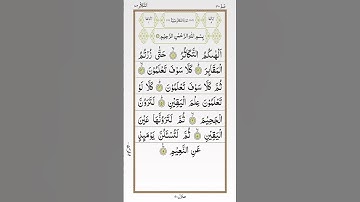 بِسْمِ اللهِ الرَّحْمٰنِ الرَّحِيْمِ
اَلْهٰىكُمُ التَّكَاثُرُ ۙ حَتّٰى زُرْتُمُ
الْمَقَابِرَ ؕ كَلَّا سَوْفَ تَعْلَمُوْنَ ۙ
ثُمَّ كَلَّا سَوْفَ تَعْلَمُوْنَ ؕ كَلَّا لَوْ
تَعْلَمُوْنَ عِلْمَ الْيَقِيْنِ ؕ لَتَرَوُنَّ
الْجَحِيْمَ ۙ ثُمَّ لَتَرَوُنَّهَا عَيْنَ
الْيَقِيْنِ ۙ ثُمَّ لَتُسْـَٔلُنَّ يَوْمَئِذٍ
عَنِ النَّعِيْمِ